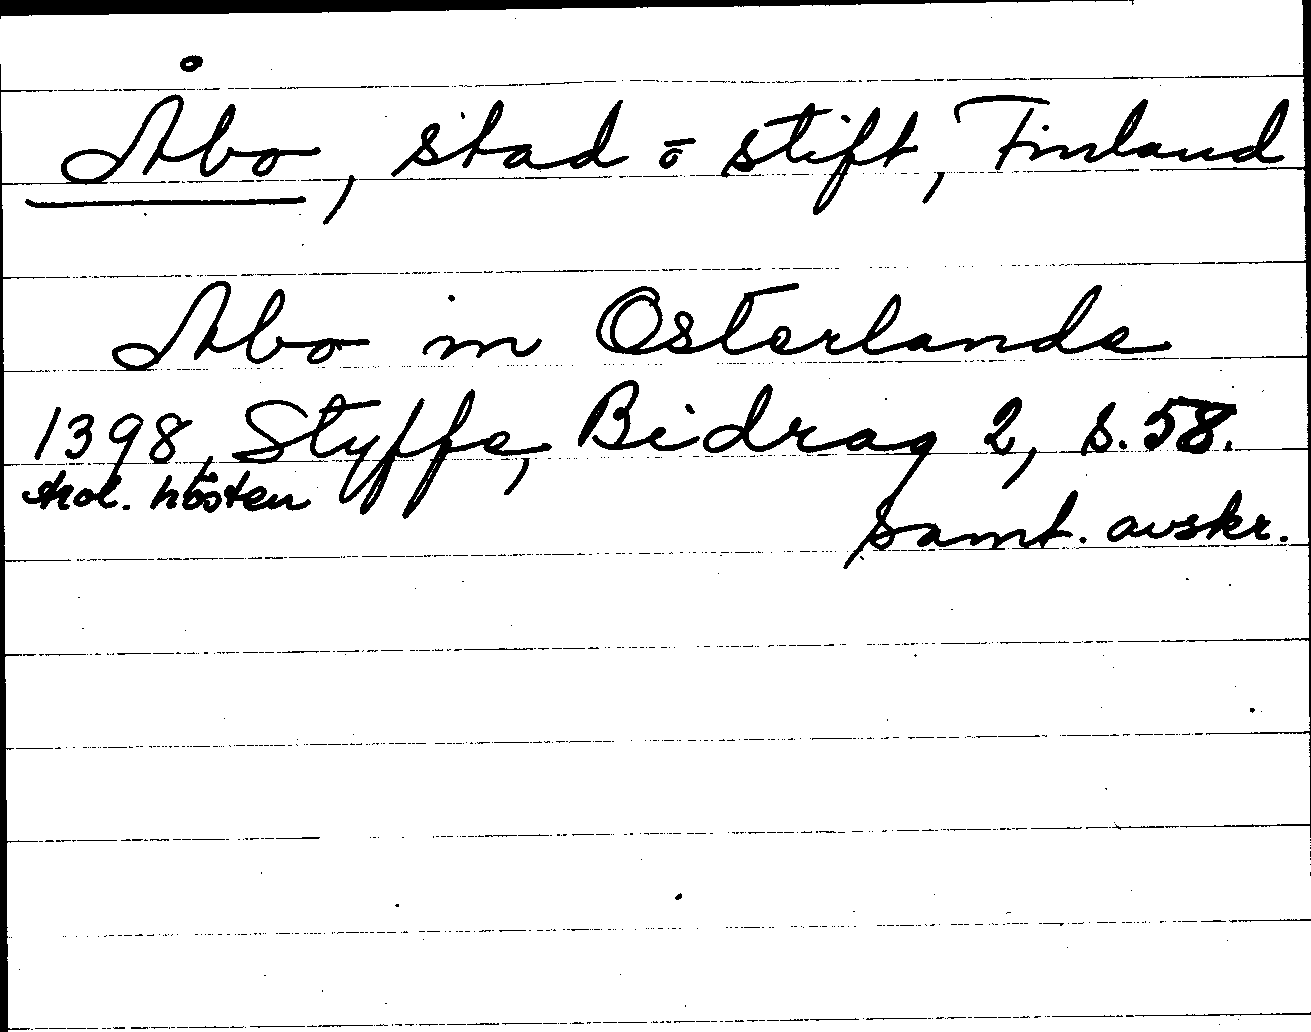 Åbo, stad o stift, Finland
Abo in Osterlande
1398, Styffe, Bidrag 2, s. 58.
trol. hösten
samt. avskr.